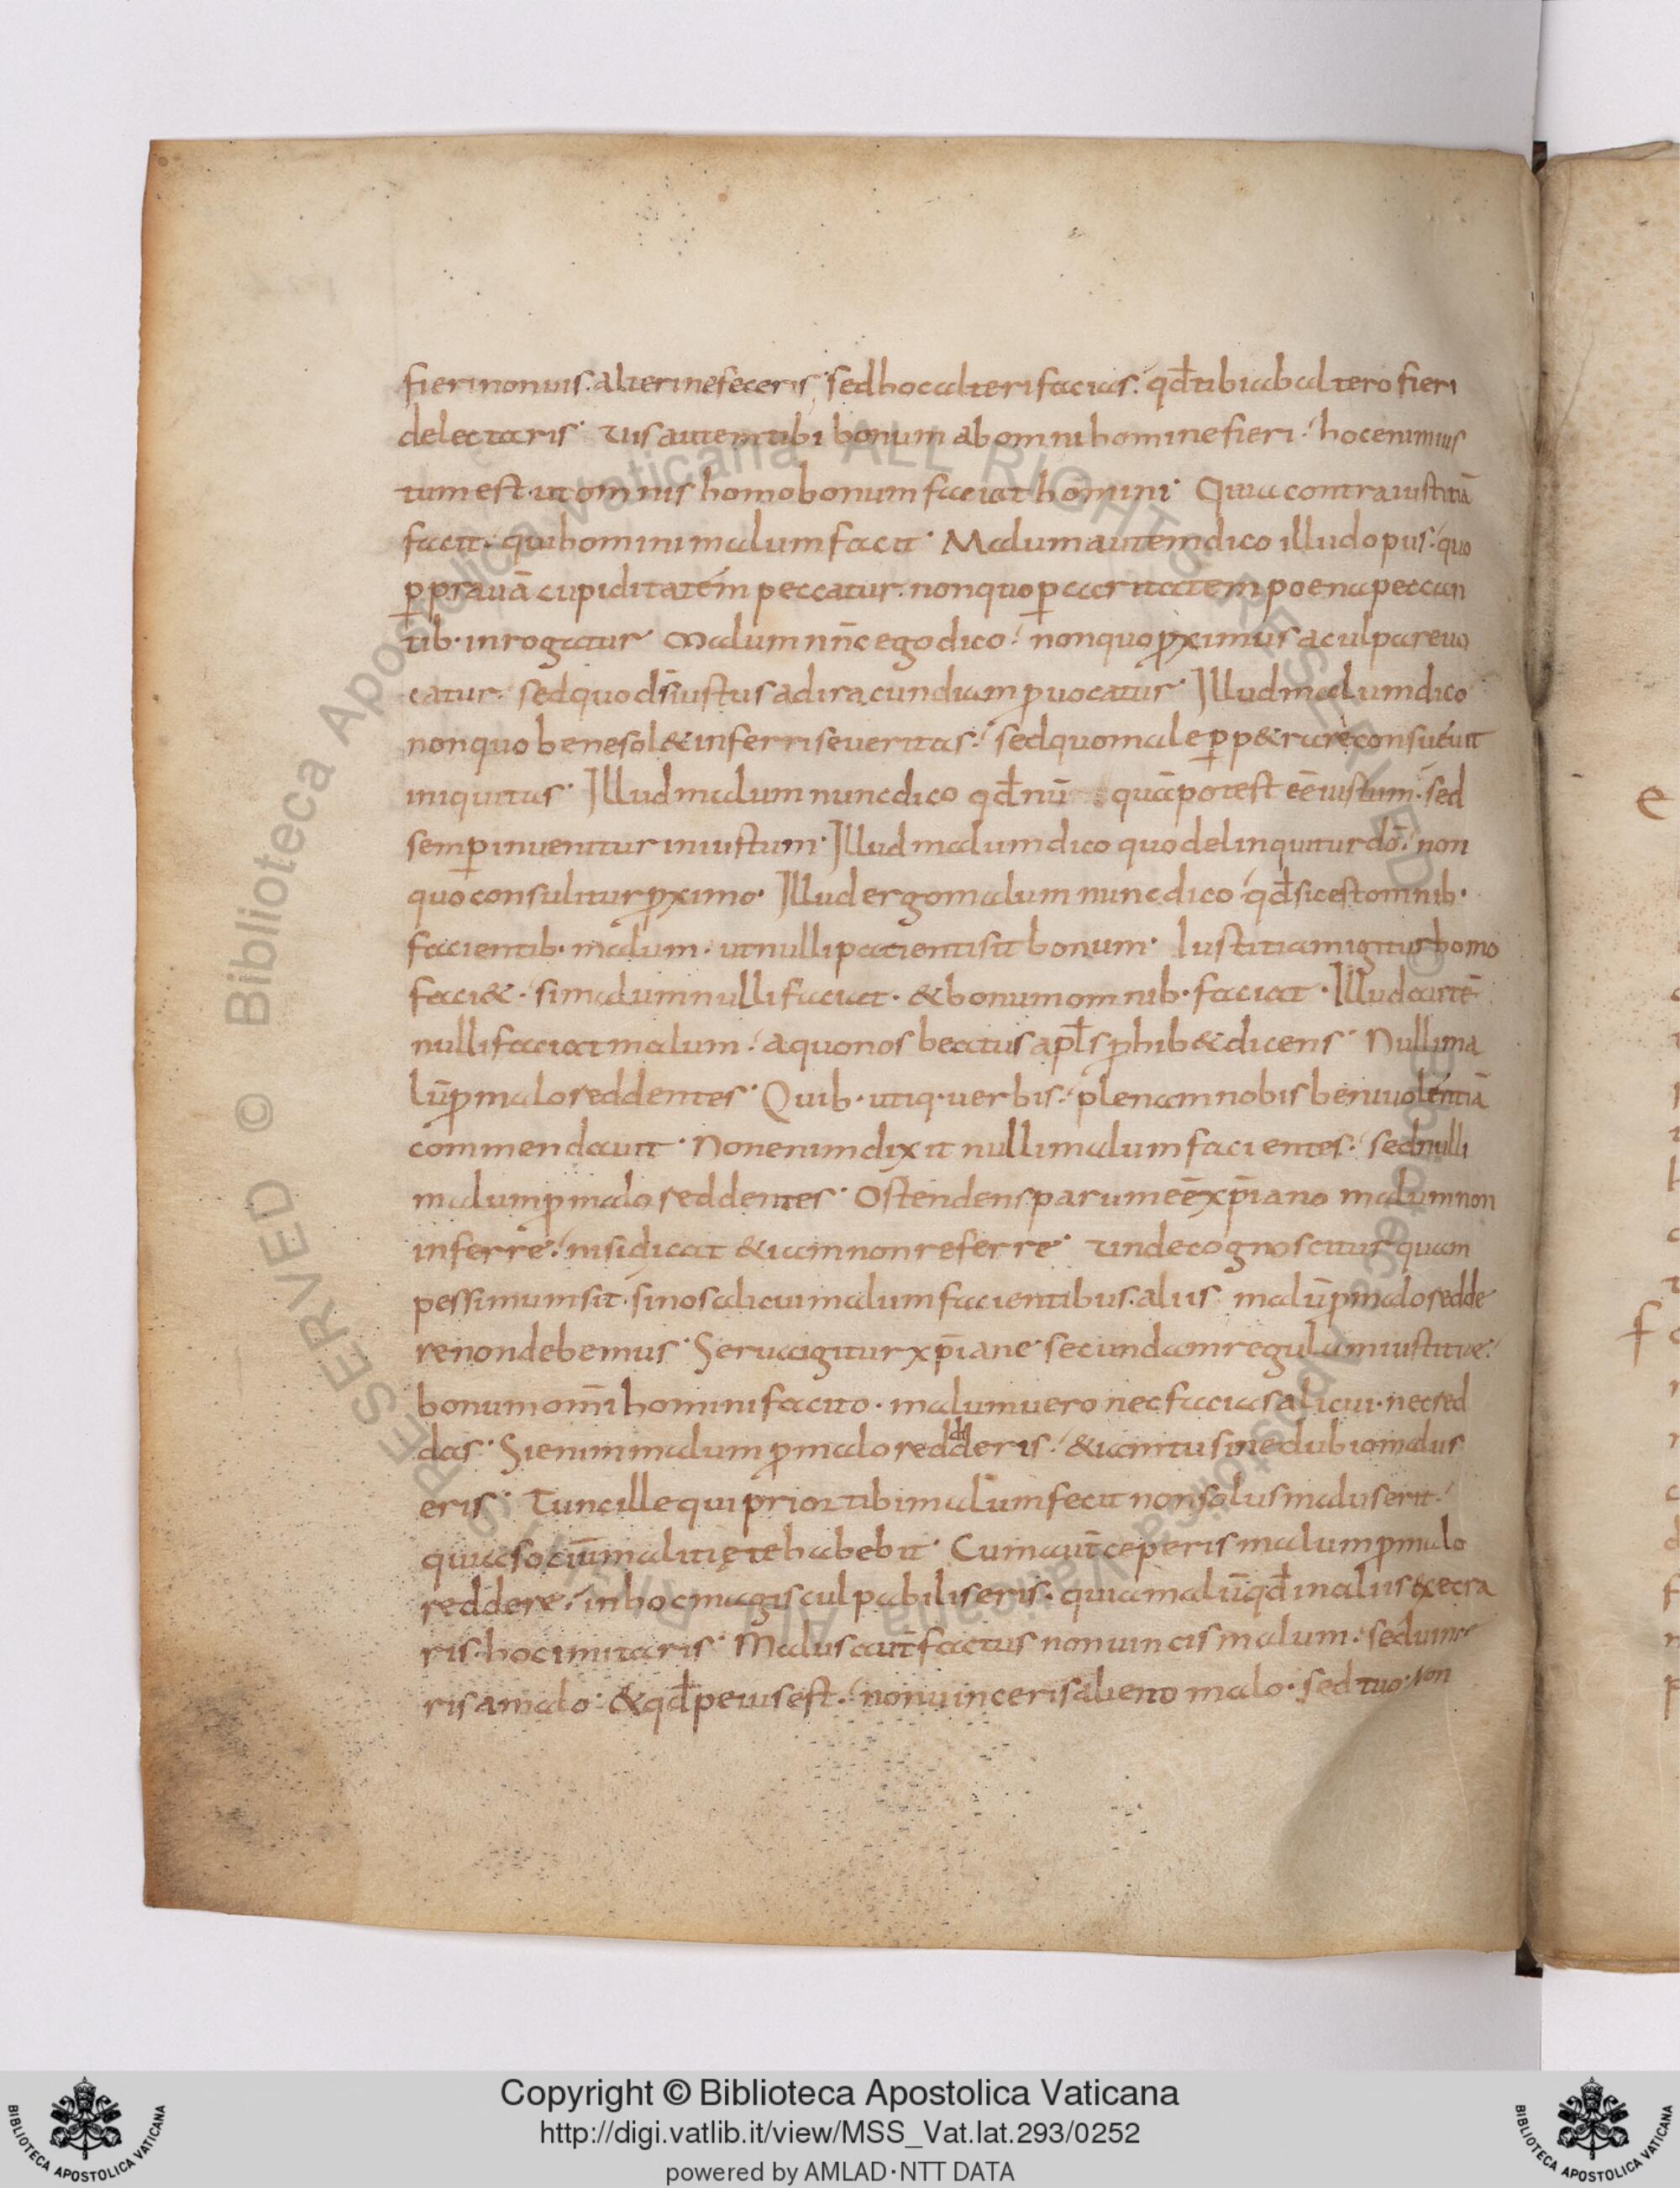 fieri non uis. alteri ne feceris; sed hoc alteri facias. qđ tibi ab altero fieri
delectaris. Uis autem tibi bonum ab omni homine fieri. hoc enim ius
tum est. ut omnis homo bonum faciat homini. Quia contra iustitiā
facit. qui homini malum facit. Malum autem dico illud opus. quo
ꝑ prauā cupiditatem peccatur. non quo ꝑ caritatem poena peccan
tib· inrogatur Malum nūc ego dico. non quo ꝓximus a culpa reuo
catur. sed quo d̄s iustus ad iracundiam ꝓuocatur. Illud malum dico
non quo bene sol& inferri seueritas. sed quo male ꝑp&rare consueuit
iniquitas. Illud malum nunc dico qđ nū quā potest ēē iustum. sed
semꝑ inuenitur iniustum. Illud malum dico quo delinquitur dō. non
quo consulitur ꝓximo. Illud ergo malum nunc dico qđ sic est omnib·
facientib· malum. ut nulli patienti sit bonum. Iustitiam igitur homo
faci&. si malum nulli faciat. & bonum omnib· faciat. Illud autē
nulli faciat malum. a quo nos beatus apl̄s ꝓhib& dicens. Nulli ma
lū ꝓ malo reddentes. Quib· utiq· uerbis. plenam nobis beniuolentiā
commendauit. Non enim dixit nulli malum facientes. sed nulli
malum ꝓ malo reddentes. Ostendens parum ēē xp̄iano malum non
inferre. nisi dicat &iam non referre. Unde cognoscitur quam
pessimum sit. si nos alicui malum facientibus. aliis malū ꝓ malo redde
re non debemus. Serua igitur xp̄iane secundam regulam iustitiae.
bonum om̄i homini facito. malum uero nec facias alicui. nec red
das. Si enim malum ꝓ malo reddderis. &iam tu sine dubio malus
de
eris. Tunc ille qui prior tibi malum fecit non solus malus erit.
quia sociū malitię te habebit. Cum aut̄ ceperis malum ꝓ malo
reddere. in hoc magis culpabilis eris. quia malū qđ in aliis execra
ris. hoc imitaris. Malus aut̄ factus non uincis malum. sed uince
ris a malo. & qđ peius est. non uinceris alieno malo. sed tuo. Non
e
f
Copyright © Biblioteca Apostolica Vaticana
http://digi.vatlib.it/view/MSS_Vat.lat.293/0252
powered by AMLAD·NTT DATA
BIBLIOTECA APOSTOLICA VATICANA
BIBLIOTECA APOSTOLICA VATICANA
© Biblioteca Apostolica Vaticana ALL RIGHTS RESERVED
© Biblioteca Apostolica Vaticana ALL RIGHTS RESERVED